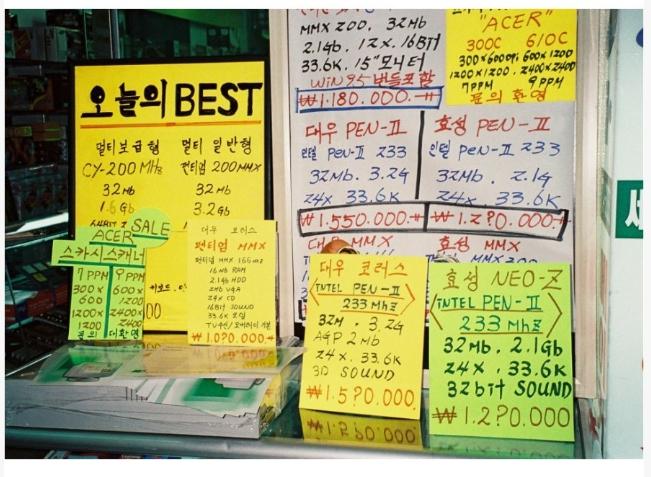 오늘의 BEST
멀티보급형
CY-200 MHz
32Mb
1.6Gb
멀티 일반형
펜티엄 200MMX
32Mb
3.2Gb
ACER SALE
스카시스캐너
7PPM 9PPM
300x 600x
600 1200
1200x 2400x
1200 2400
문의 대환영
대우 코러스
펜티엄 MMX
펜티엄 MMX 166MHz
16MB RAM
2.1GB HDD
2MB VGA
24X CD
16BIT SOUND
33.6K 모뎀
₩1.0?0.000-
MMX 200, 32Mb
2.1Gb, 12x, 16BIT
33.6K, 15"모니터
WIN95 번들포함
₩1.180.000.-
"ACER"
300C 610C
300x600DPI 600x1200
1200x1200, 2400x2400
7PPM 9PPM
문의 환영
대우 PEN-II
인텔 PEN-II 233
32Mb, 3.2G
24x 33.6K
₩1.550.000.-
효성 PEN-II
인텔 PEN-II 233
32Mb, 2.1G
24x, 33.6K
₩1.2?0.000.-
대우 MMX
효성 MMX
대우 코러스
INTEL PEN-II
233MhZ
32M, 3.2G
AGP 2Mb
24x, 33.6K
3D SOUND
₩1.5?0.000
효성 NEO-Z
INTEL PEN-II
233MhZ
32Mb, 2.1Gb
24x, 33.6K
32bit SOUND
₩1.2?0.000